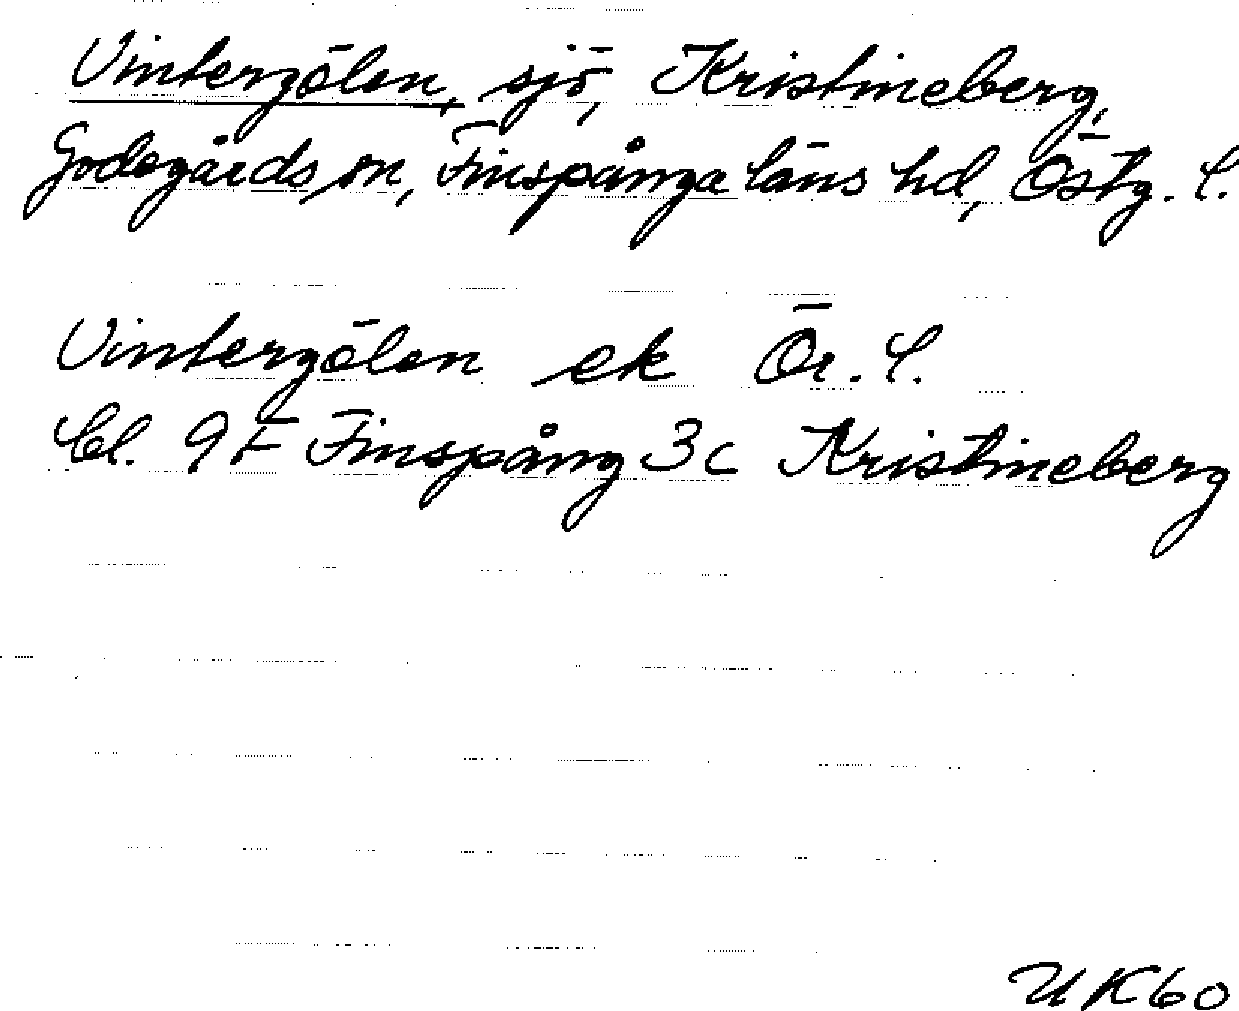 Vintergölen, sjö, Kristineberg,
Godegårds sn, Finspånga läns hd, Östg. l.
Vintergölen ek Ör. l.
Bl. 9F Finspång 3c Kristineberg
UK60